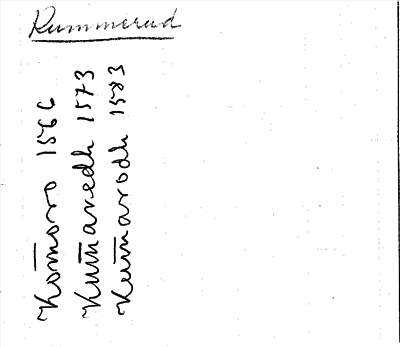 Kummerud
Kom̄oro 1566
Kum̄aredh 1573
Kum̄arodh 1583